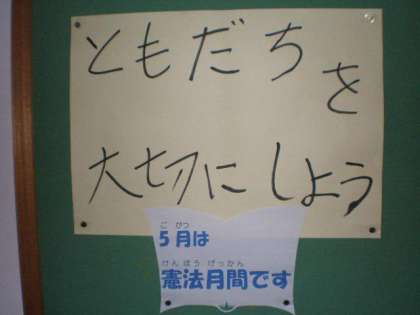 ともだちを
大切にしよう
ご がつ
5月は
けんぽう げっかん
憲法月間です